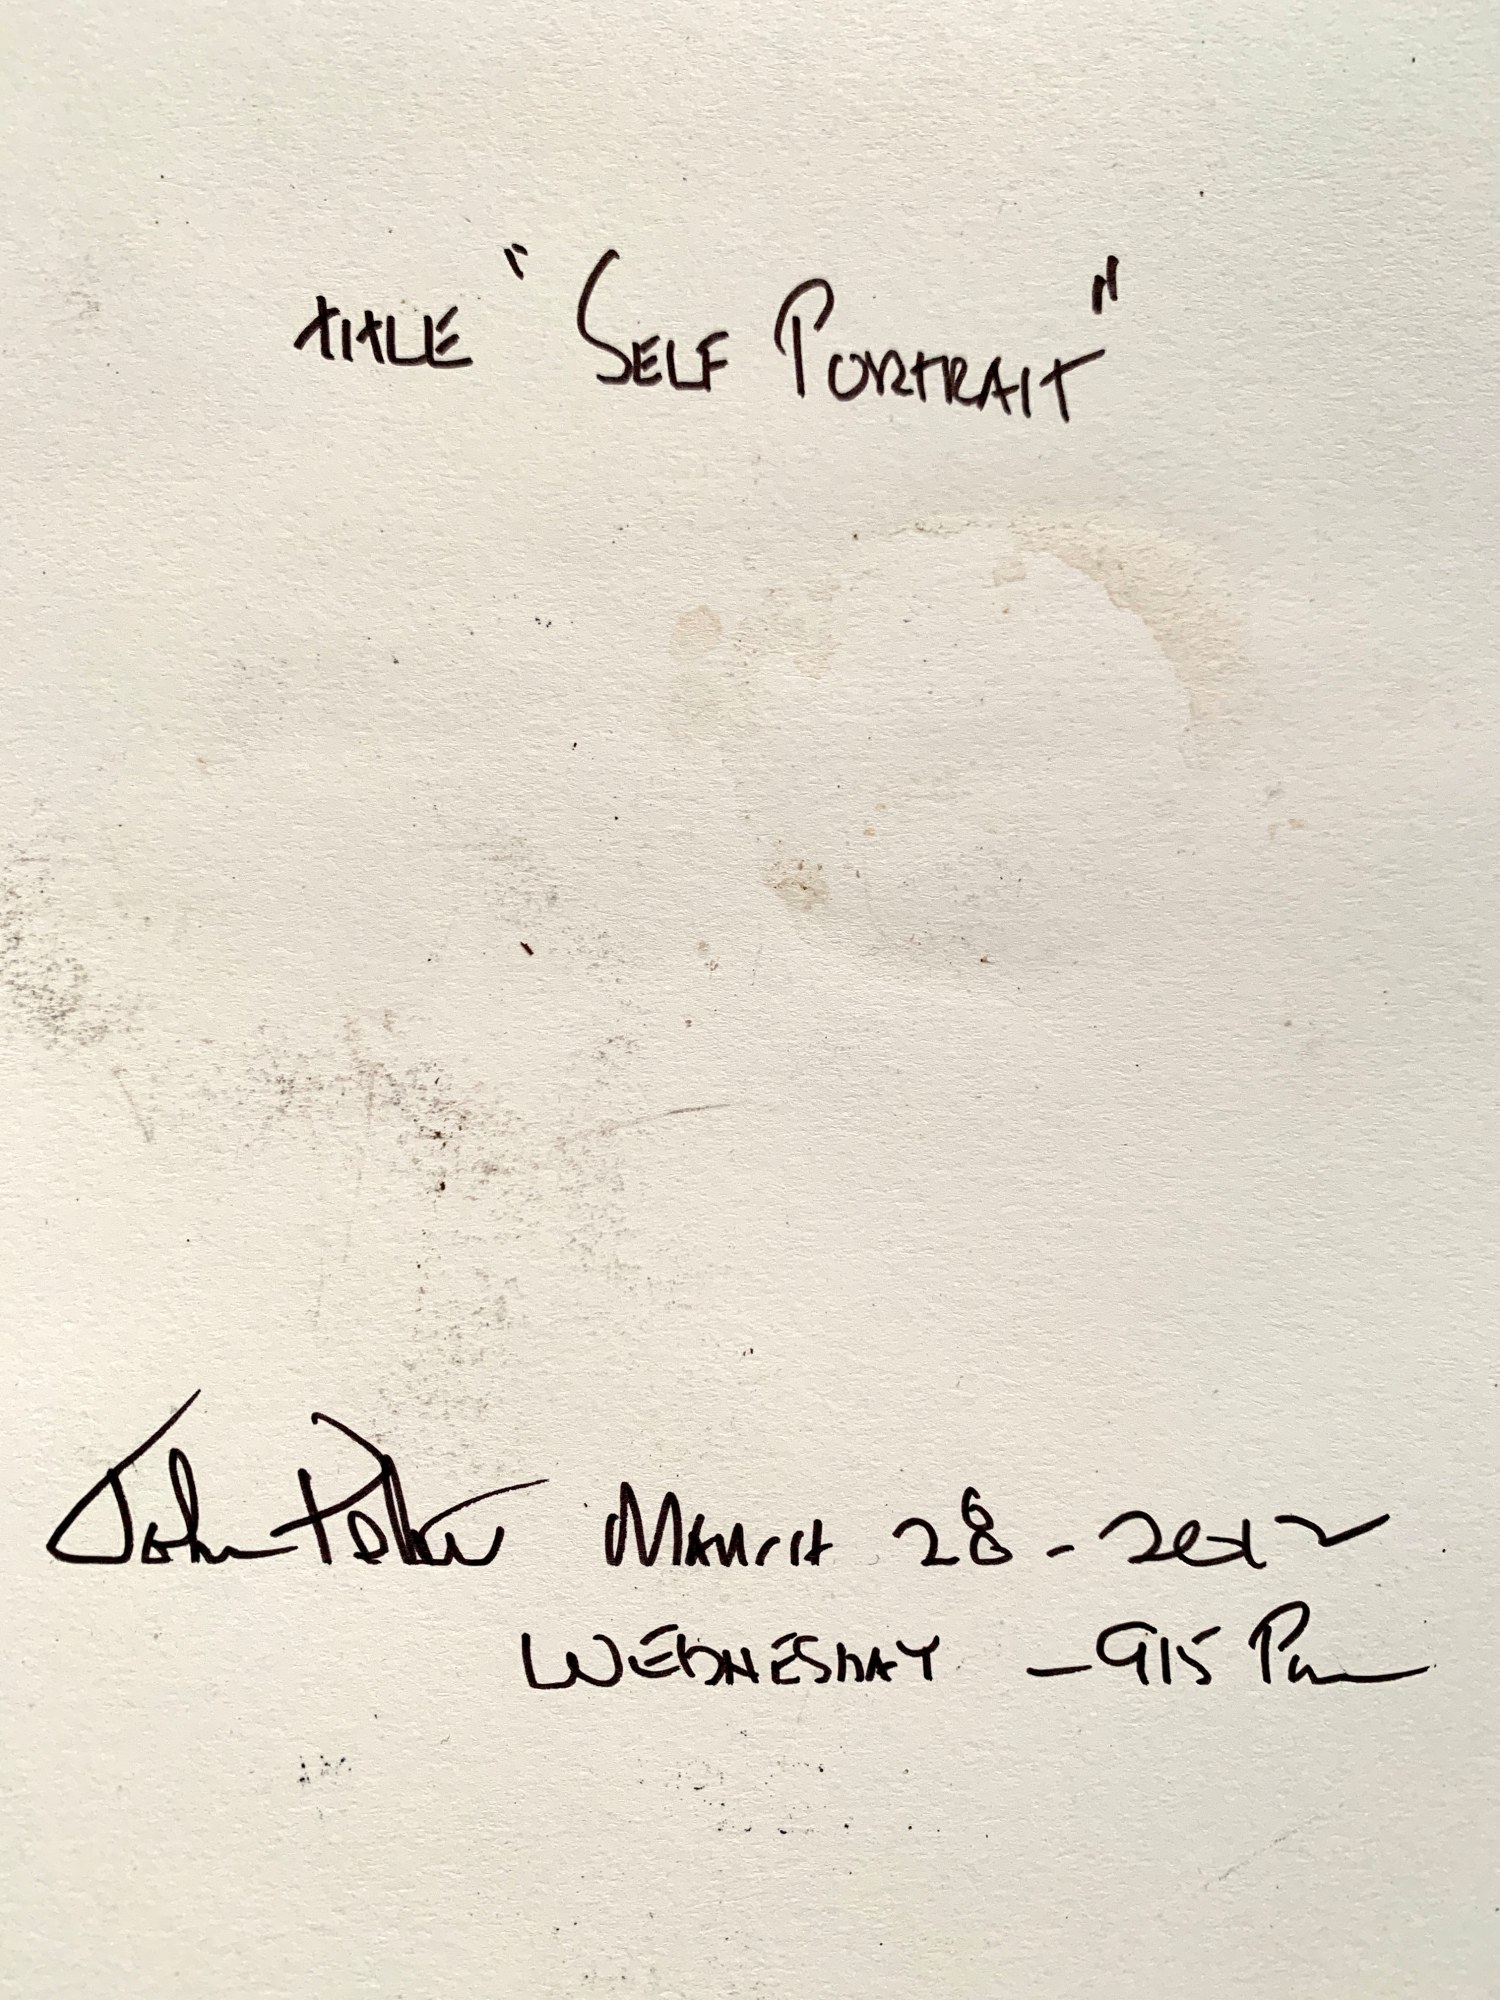 TITLE "SELF PORTRAIT"
John MARCH 28 - 2012
WEDNESDAY - 915 Pm